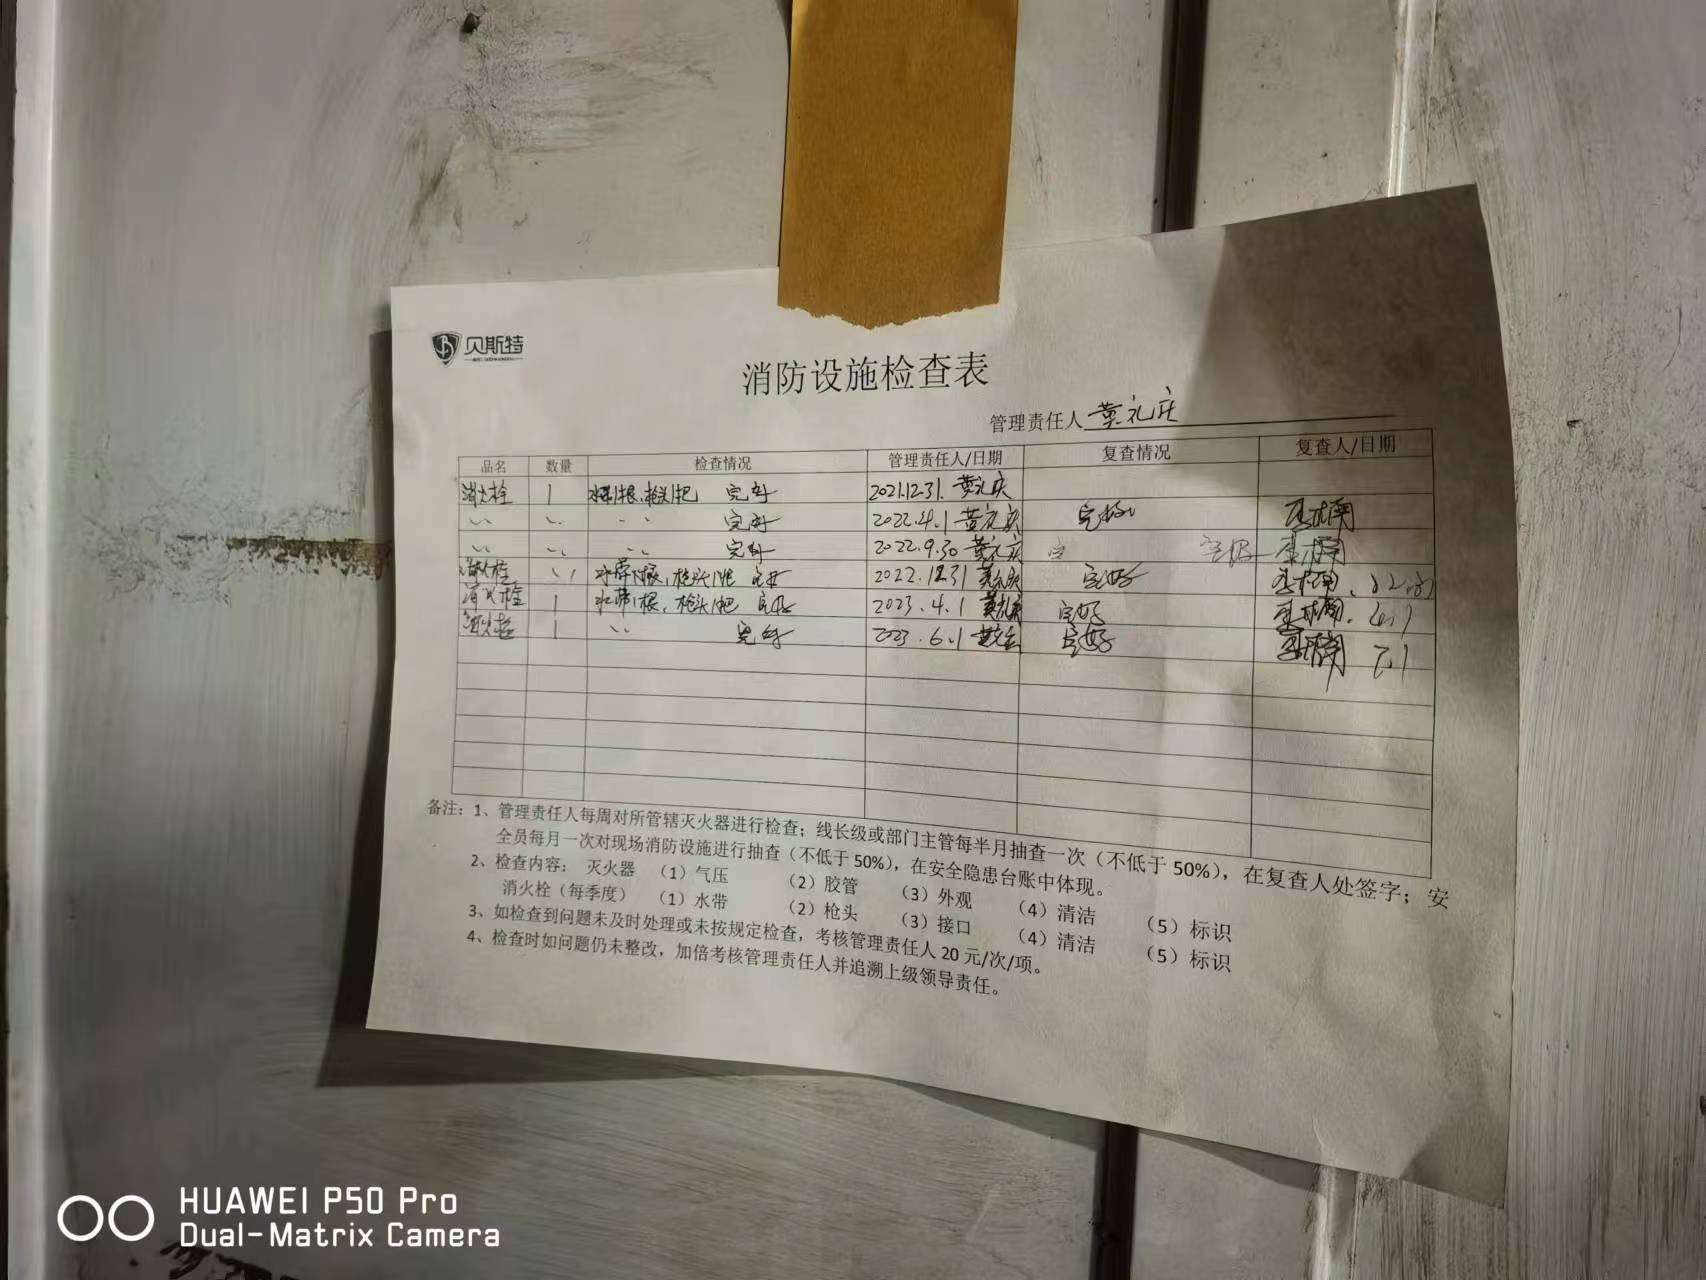 贝斯特
消防设施检查表
管理责任人 黄礼庆
品名 数量 检查情况 管理责任人/日期 复查情况 复查人/日期
消火栓 1 水带1根、枪头1把 完好 2021.12.31. 黄礼庆
完好 2022.4.1 黄礼庆 完好
完好 2022.9.30 黄礼庆 完好
消火栓 水带1根,枪头1把 完好 2022.12.31 黄礼庆 完好
消火栓 1 水带1根,枪头1把 完好 2023.4.1 黄礼庆 完好
消火栓 1 完好 2023.6.1 黄礼庆 完好
备注:1、管理责任人每周对所管辖灭火器进行检查;线长级或部门主管每半月抽查一次(不低于50%),在复查人处签字;安
全员每月一次对现场消防设施进行抽查(不低于50%),在安全隐患台账中体现。
2、检查内容: 灭火器 (1)气压 (2)胶管 (3)外观 (4)清洁 (5)标识
消火栓(每季度) (1)水带 (2)枪头 (3)接口 (4)清洁 (5)标识
3、如检查到问题未及时处理或未按规定检查,考核管理责任人20元/次/项。
4、检查时如问题仍未整改,加倍考核管理责任人并追溯上级领导责任。
HUAWEI P50 Pro
Dual-Matrix Camera